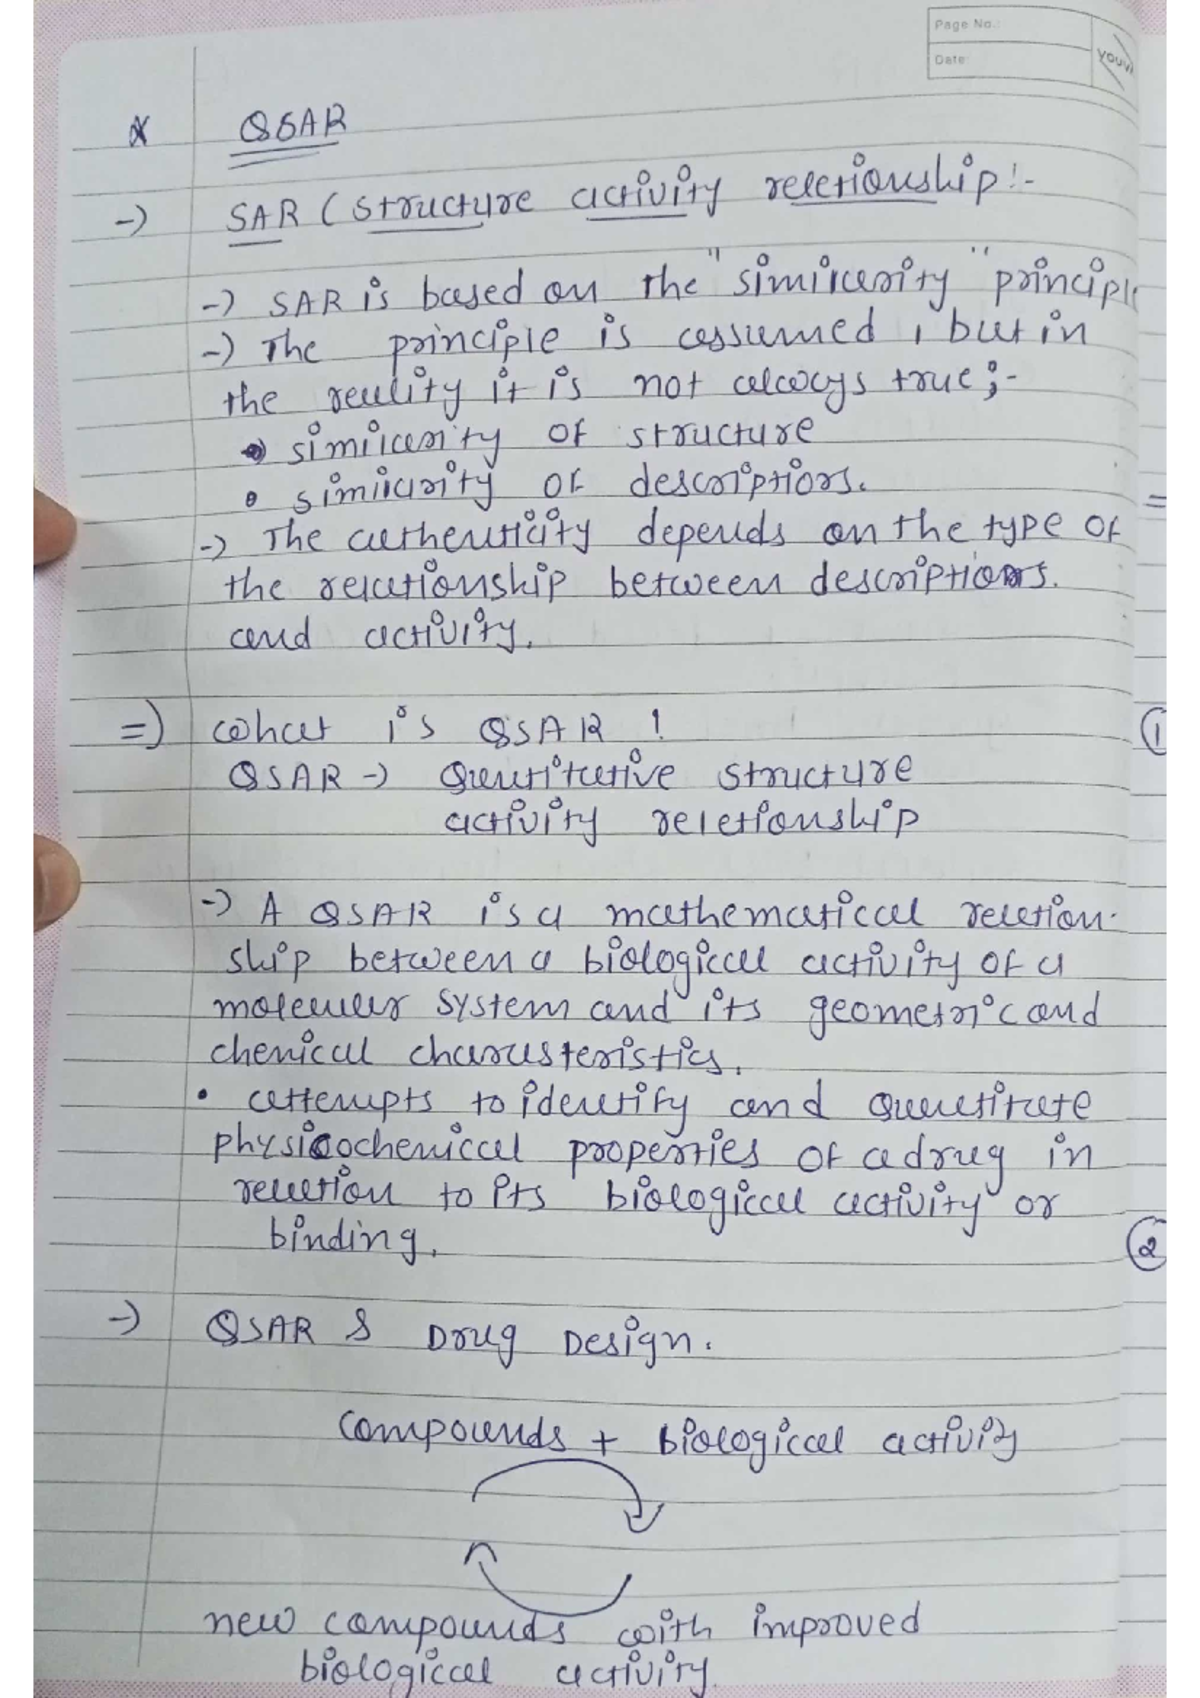 Page No.:
Date:
YOUVA
* QSAR
-> SAR (structure activity reletionship:-
-> SAR is based on the "similarity" principle
-> The principle is assumed, but in
the reality it is not always true;-
• similarity of structure
• similarity of descriptiors.
-> The authenticity depends on the type of
the relationship between descriptiors.
and activity.
=> what is QSAR !
QSAR -> Quantitative structure
activity reletionship
-> A QSAR is a mathematical reletion-
ship between a biological activity of a
molecular system and its geometric and
chemical charusteristics.
• attempts to identify and quantitate
physicochemical properties of a drug in
relation to its biological activity or
binding.
-> QSAR & Drug Design.
compounds + biological activity
new compounds with improved
biological activity.
=
1
2